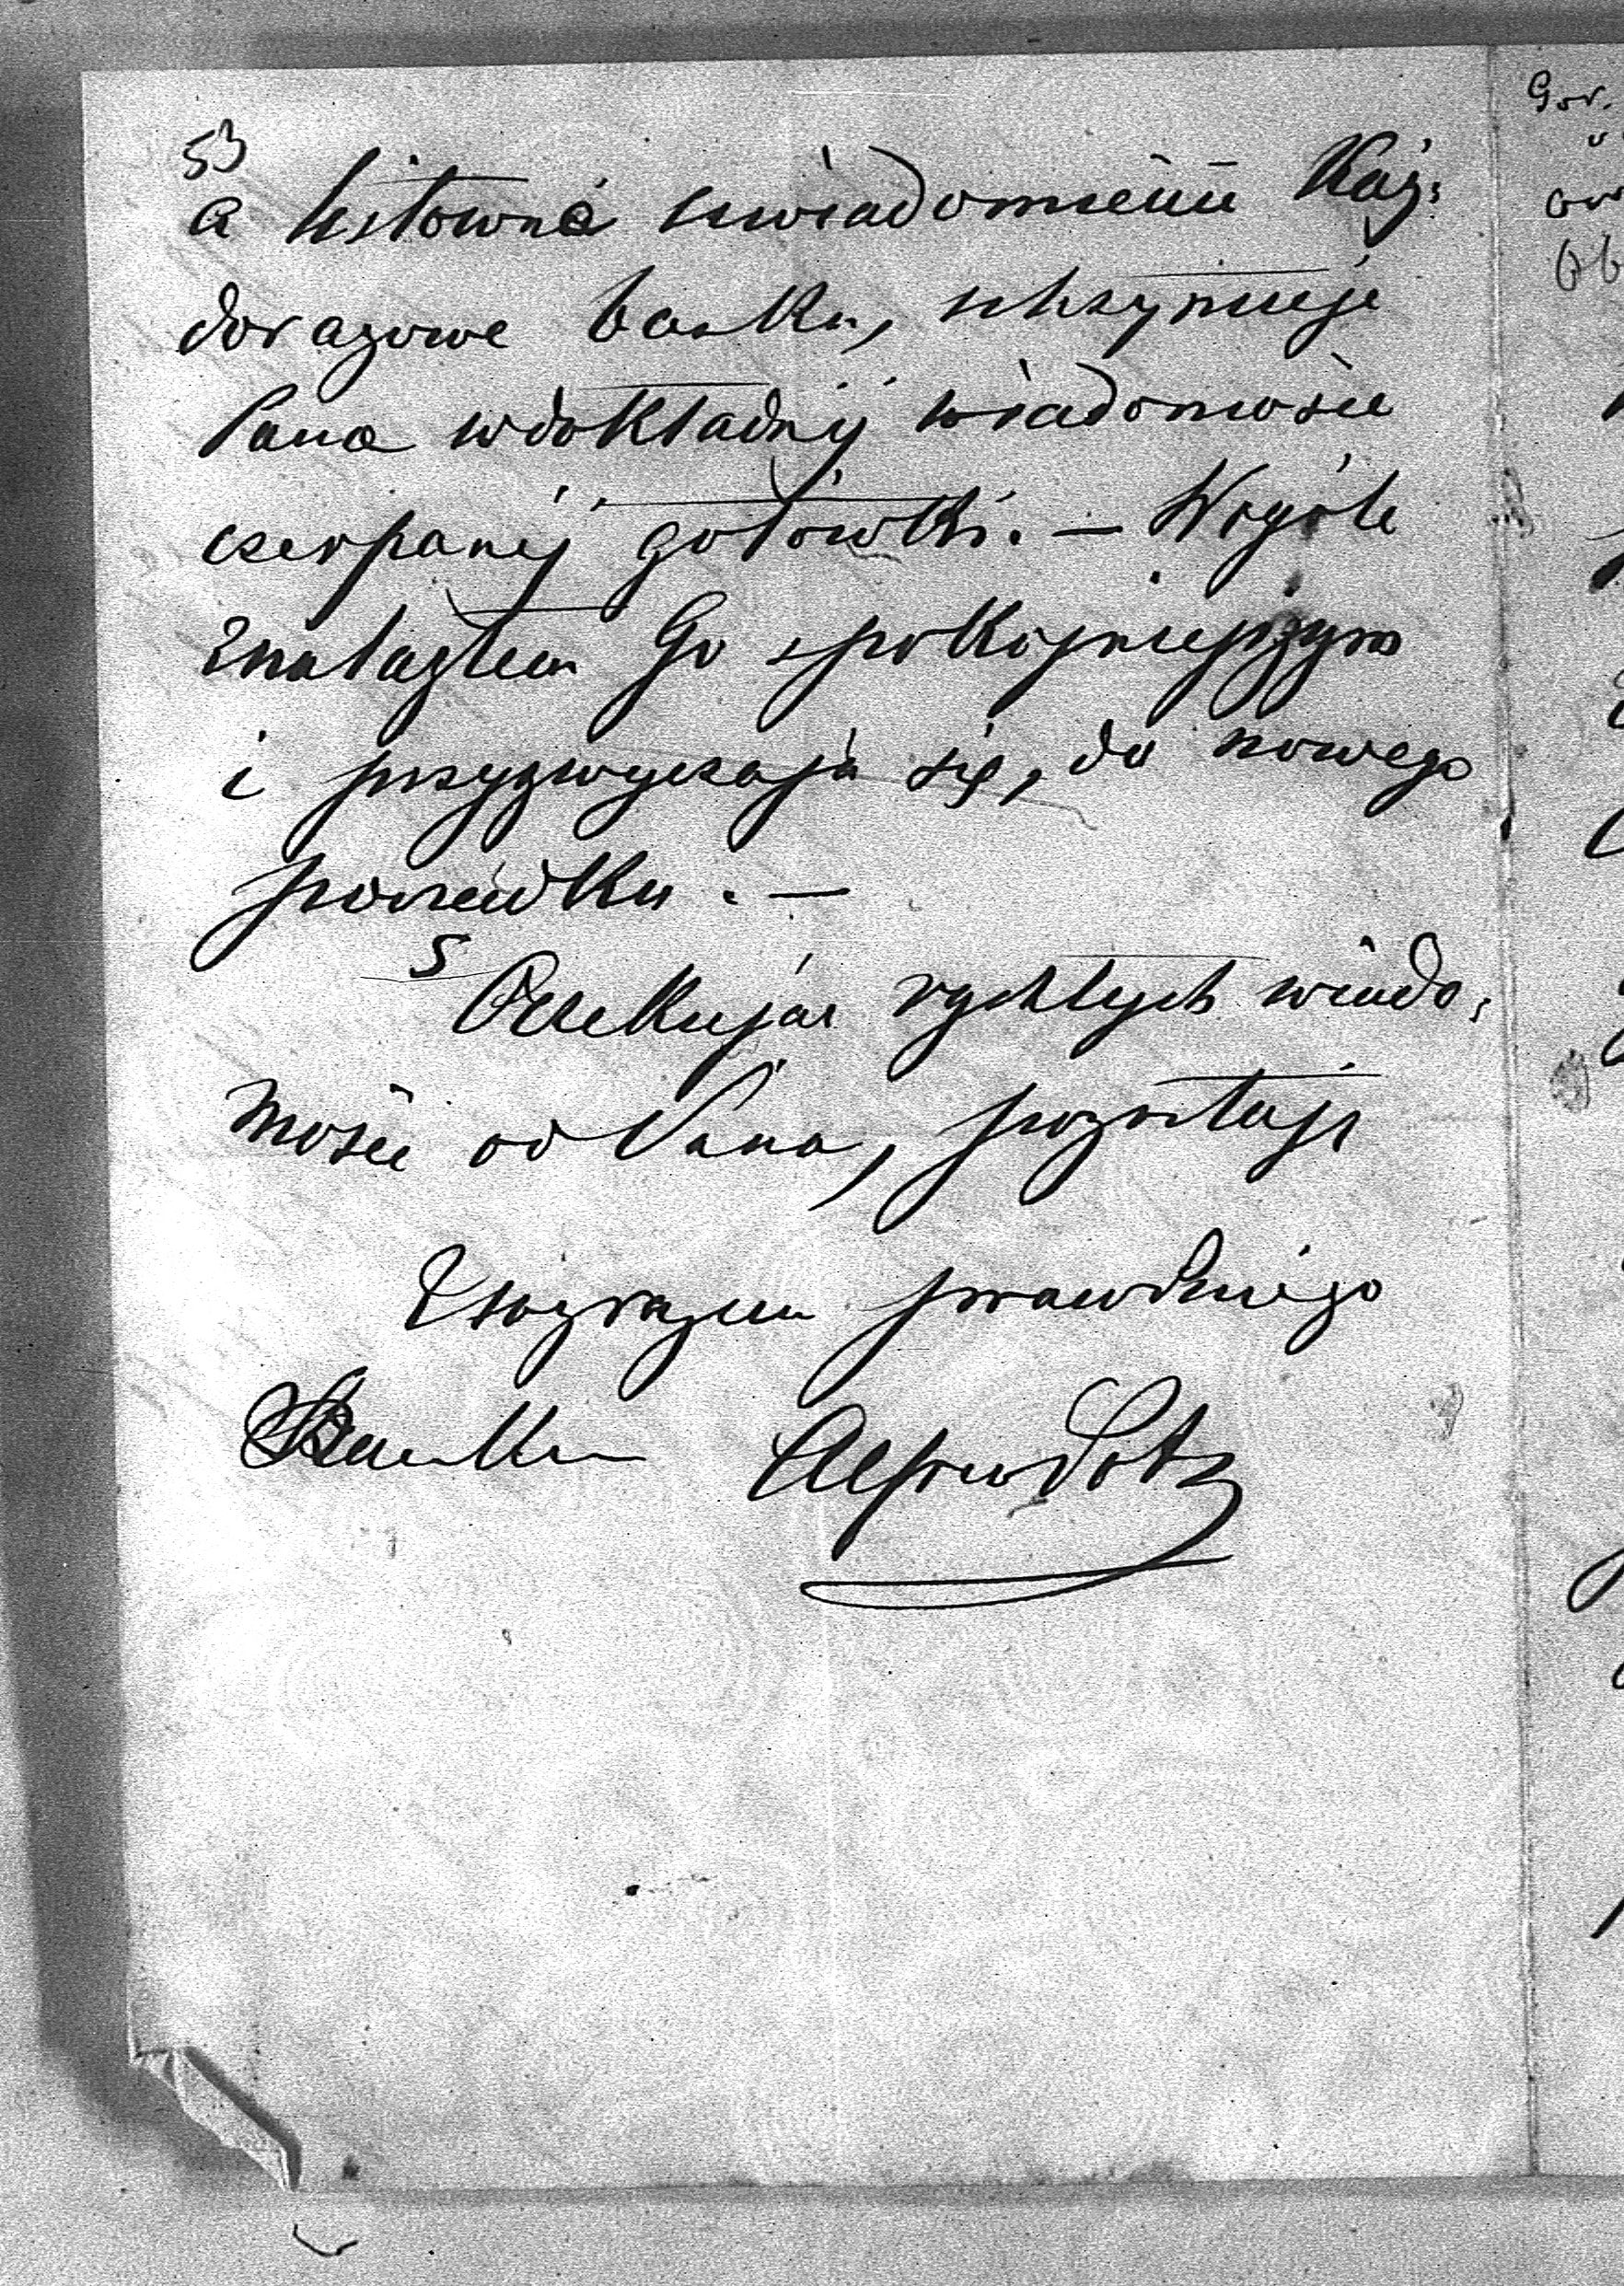 53
a listowne uwiadomienie Każ:
dorazowe banku, utrzymuje
Pana w dokładnej wiadomości
czerpanej gotówki. — Wogóle
znalazłem Go spokojniejszym
i przyzwyczaja się, do nowego
porządku. —
5 Oczekując rychłych wiado:
mości od Pana, pozostaję
Z wyrazem prawdziwego
szacunku Alfred Potz
Gor.